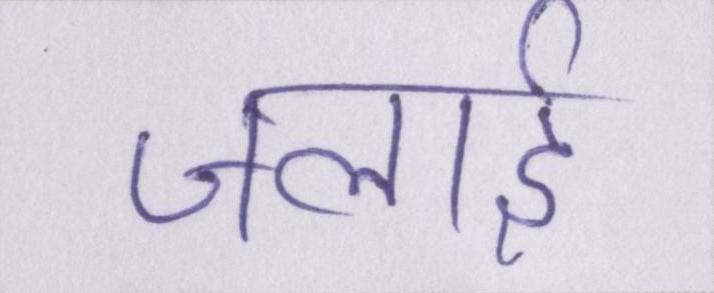 जलाई